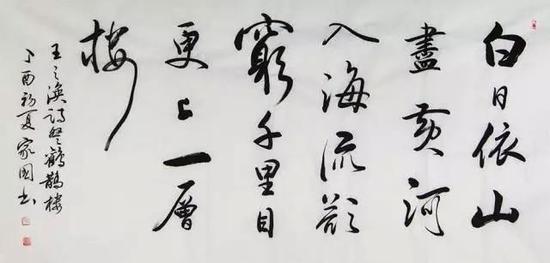 白日依山
盡黃河
入海流欲
窮千里目
更上一層
樓
王之渙詩登鸛鵲樓
丁酉初夏家國書